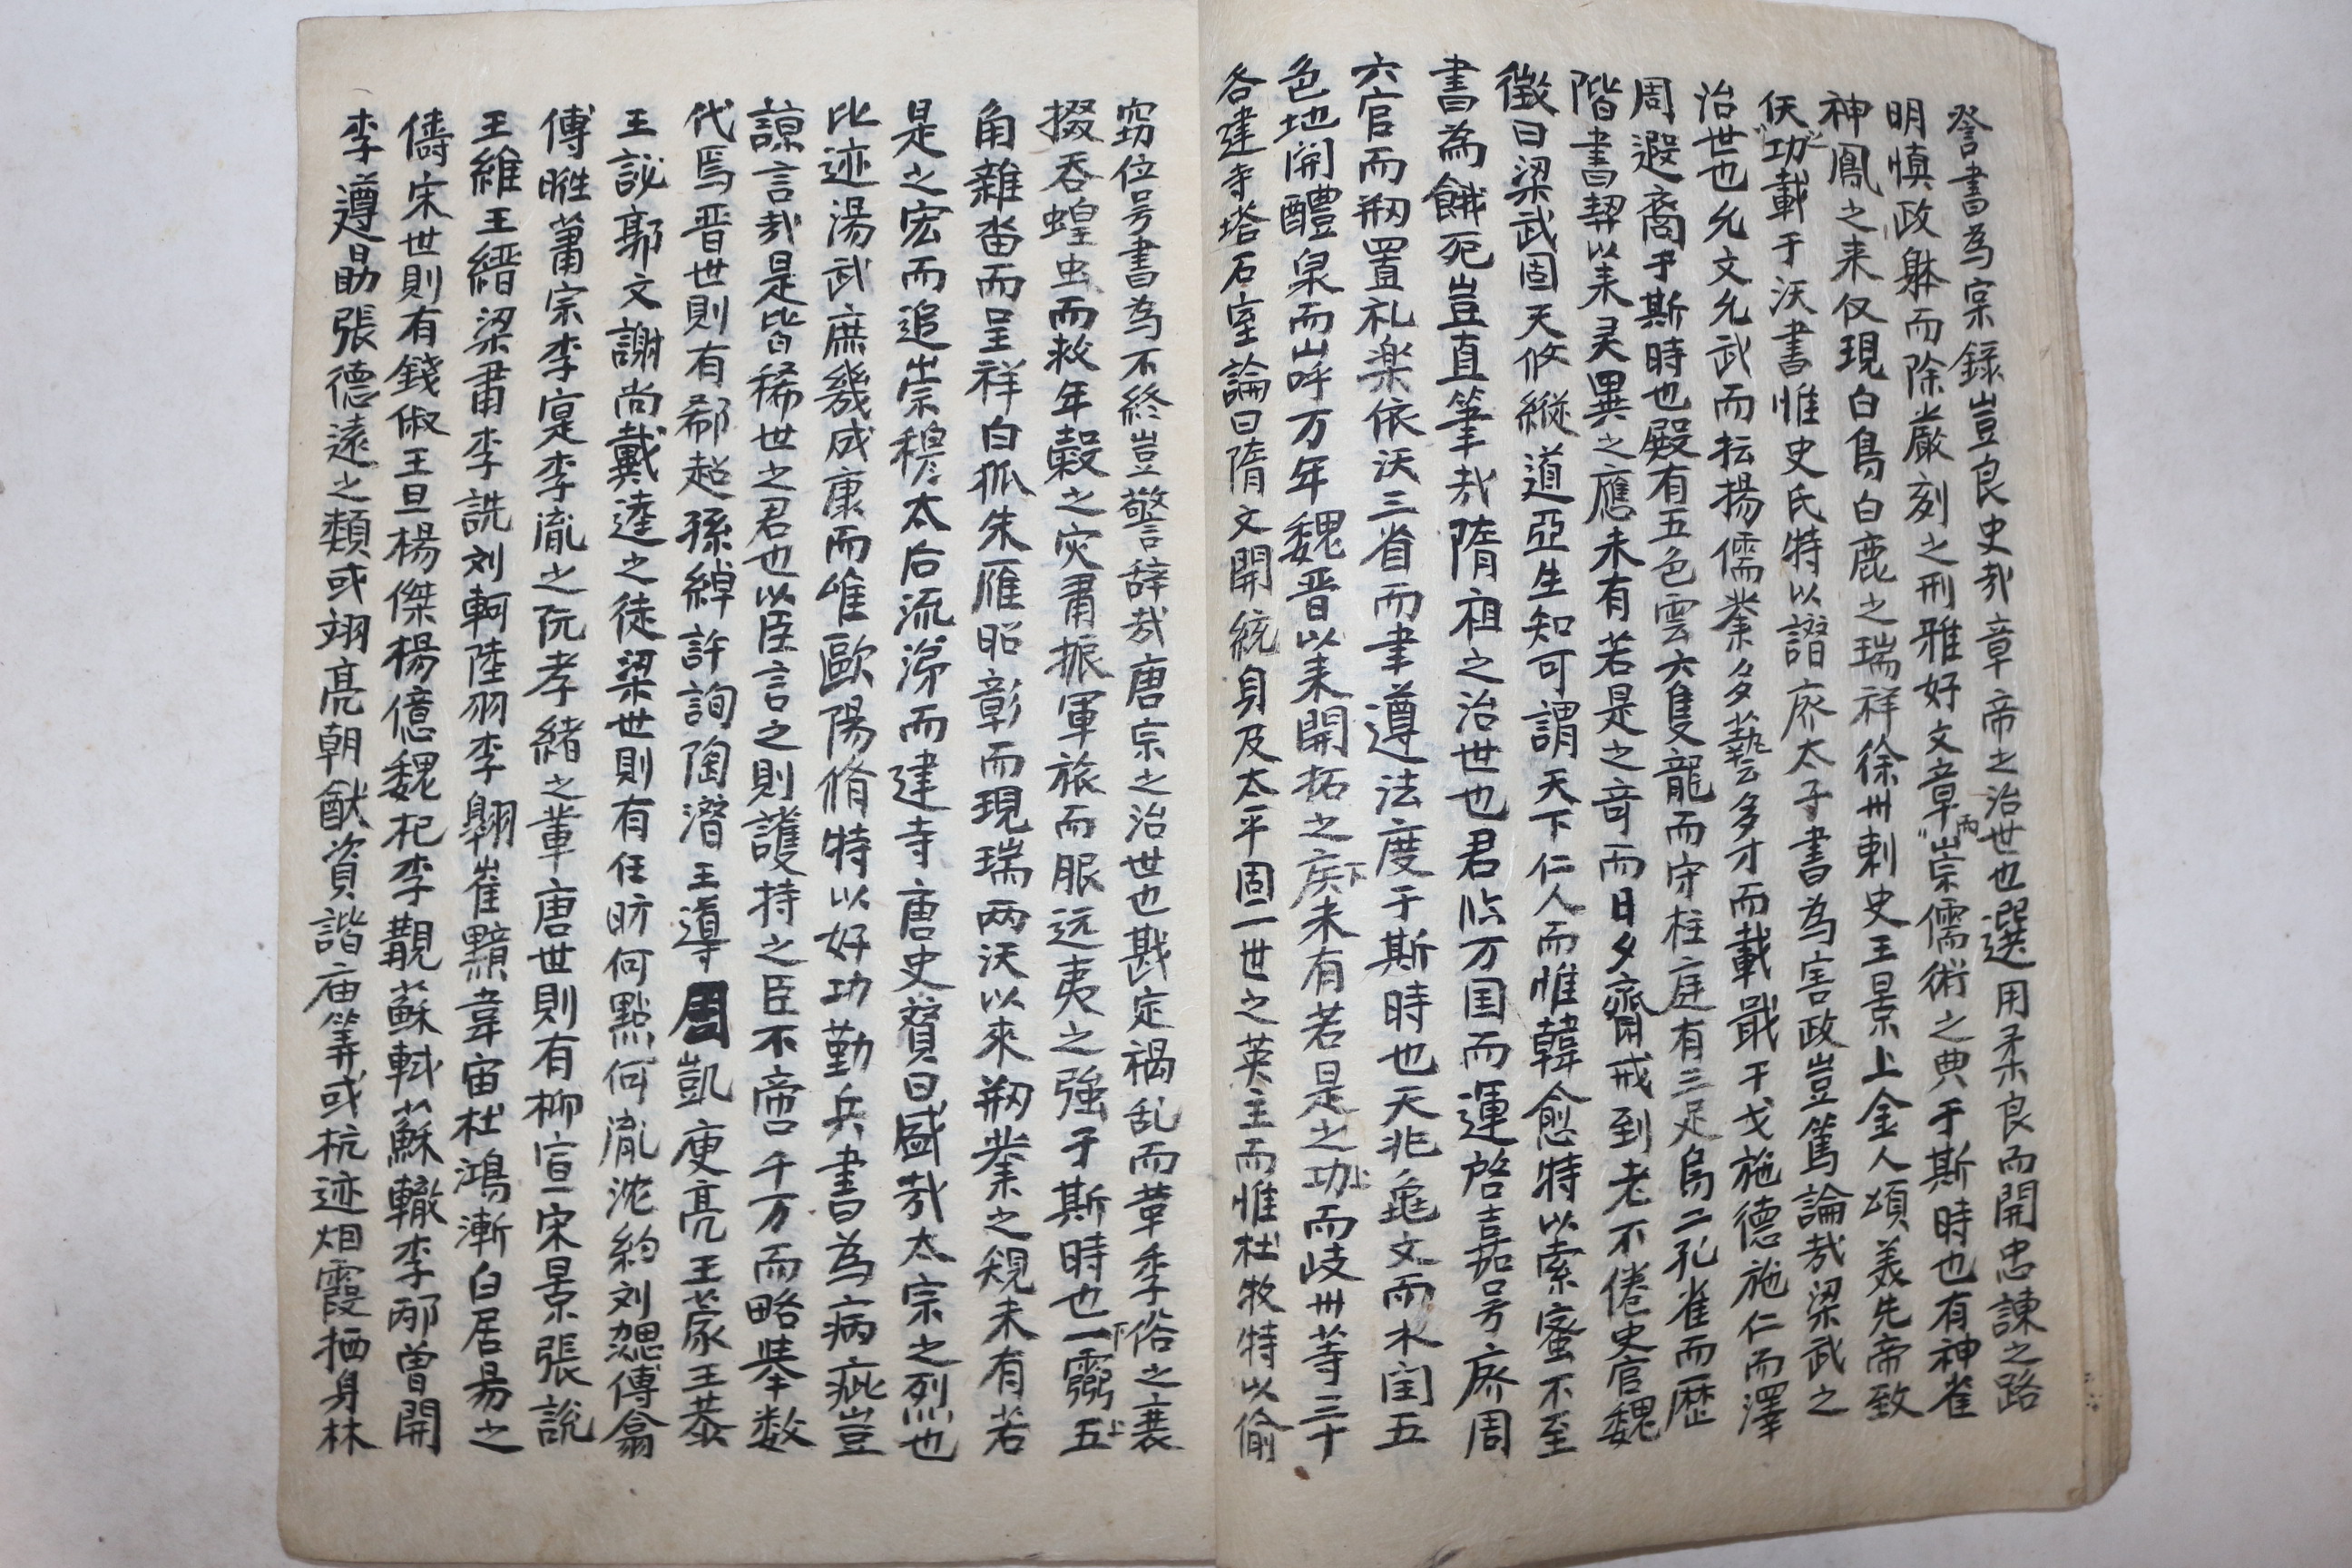 詧書為實錄豈良史㢤章帝之治世也選用柔良而開忠諫之路
明慎政躰而除嚴刻之刑雅好文章而崇儒術之典于斯時也有神雀
神鳳之来仪現白鳥白鹿之瑞祥徐州刺史王景上金人頌美先帝致
仸之功載于沃書惟史氏特以譛废太子書為害政豈篤論㢤梁武之
治世也允文允武而耘揚儒業多藝多才而載戢干戈施德施仁而澤
周遐裔于斯時也殿有五色雲六隻龍而守柱庭有三足烏二孔雀而歷
階書契以来灵異之應未有若是之竒而日夕齋戒到老不倦史官魏
徵曰梁武固天攸縱道亞生知可謂天下仁人而惟韓愈特以索蜜不至
書為餓死豈直筆㢤隋祖之治世也君临万国而運啓嘉号废周
六官而剏置礼楽依沃三省而聿遵法度于斯時也天兆龜文而水闰五
色地開醴泉而山呼万年魏晋以来開拓之疾未有若是之功而岐州等三十
各建寺塔石室論曰隋文開統自及太平固一世之英主而惟杜牧特以偷
窃位号書為不終豈警辞㢤唐宗之治世也戡定禍乱而革季俗之衰
掇吞蝗虫而救年穀之灾肅振軍旅而服远夷之强于斯時也一靈五
角雜畓而呈祥白狐朱雁昭彰而現瑞两沃以來剏業之䂓未有若
是之宏而追崇穆穆太后流涕而建寺唐史賛曰盛㢤太宗之烈也
比迹湯武庶幾成康而唯歐陽脩特以好功勤兵書為病疵豈
諒言㢤是皆稀世之君也以臣言之則護持之臣不啻千万而略舉数
代焉晋世則有郗超孫綽許詢陶潛王導周凱庾亮王蒙王恭
王謐郭文謝尚戴逵之徒梁世則有任昉何點何胤沈約刘勰傅翕
傅暀蕭宗李寔李胤之阮孝緒之輩唐世則有柳宣宋景張說
王維王縉梁肅李詵刘軻陸羽李翶崔黯韋宙杜鴻漸白居易之
儔宋世則有錢俶王旦楊傑楊億魏杞李覯蘇軾蘇轍李邴曾開
李遵勗張德遠之類或翊亮朝猷資諧庙筭或杭迹烟霞栖身林